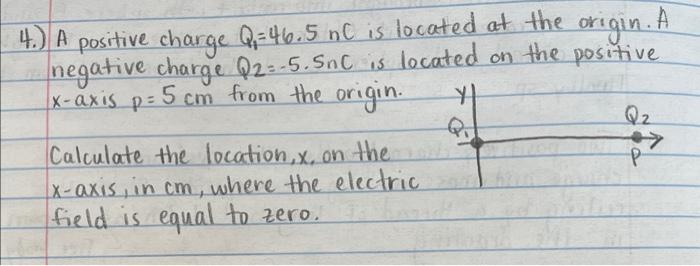 4.) A positive charge Q₁=46.5 nC is located at the origin. A
negative charge Q2=-5.5nC is located on the positive
x-axis p=5 cm from the origin.
y
Q₁
Q₂
p
Calculate the location, x, on the
x-axis, in cm, where the electric
field is equal to zero.